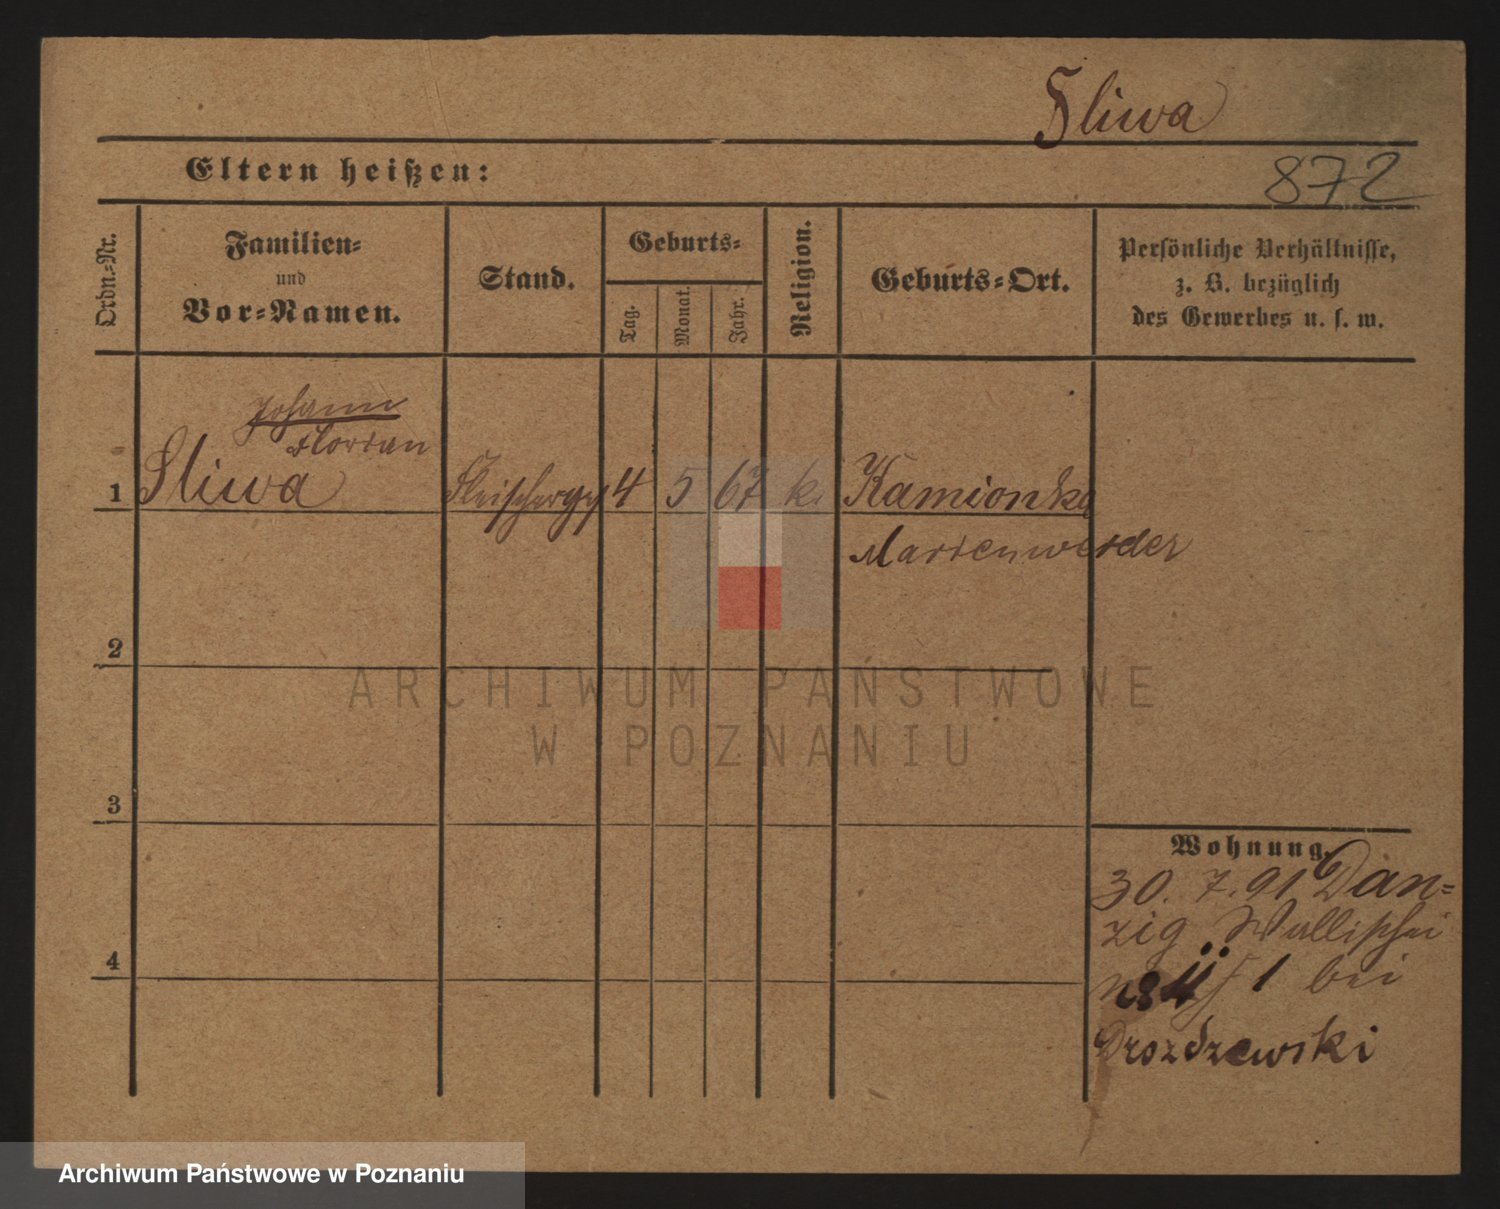 Sliwa
872
Eltern heißen:
Ordn.-Nr.
Familien-
und
Vor-Namen.
Stand.
Geburts-
Tag.
Monat.
Jahr.
Religion.
Geburts-Ort.
Persönliche Verhältnisse,
z. B. bezüglich
des Gewerbes u. s. w.
Johann
Florian
1 Sliwa Fleischerges 4 5 67 k. Kamionka
Marienwerder
2
ARCHIWUM PAŃSTWOWE
W POZNANIU
3
Wohnung.
30. 7. 91 Dan-
zig Wallischei
1 bei
4
Drozdzewski
Archiwum Państwowe w Poznaniu